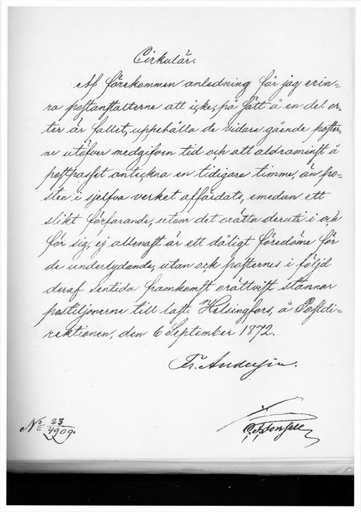 Cirkulär.
Af förekommen anledning får jag erin-
ra postanstalterna att icke, på sätt å en del or-
ter är fallet, uppehålla de vidare gående poster-
ne utöfver medgifven tid och att aldraminst å
postpasset anteckna en tidigare timme, än po-
sten i sjelfva verket affärdats, emedan ett
slikt förfarande, utom det orätta deruti i och
för sig, ej allenast är ett dåligt föredöme för
de underlydande, utan ock posternes i följd
deraf sentida framkomst orättvist stannar
postiljonerne till last. Helsingfors, å Postdi-
rektionen, den 6 September 1872.
Fr. Andersin.
No 23
4909.